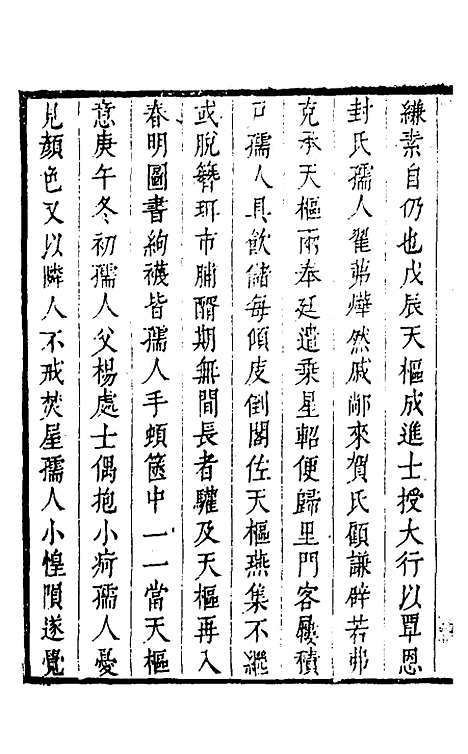 縑素自仍也戊辰天樞成進士授大行以覃恩
封氏孺人翟茀燁然戚鄰來賀氏顧謙辟若弗
克承天樞兩奉廷遣乘星軺便歸里門客屨積
戶孺人具飲儲每傾皮倒閣佐天樞燕集不繼
或脫簪珥市脯醑期無間長者驩及天樞再入
春明圖書絢襪皆孺人手頓篋中一一當天樞
意庚午冬初孺人父楊處士偶抱小痾孺人憂
見顏色又以隣人不戒焚屋孺人小惶隕遂覺